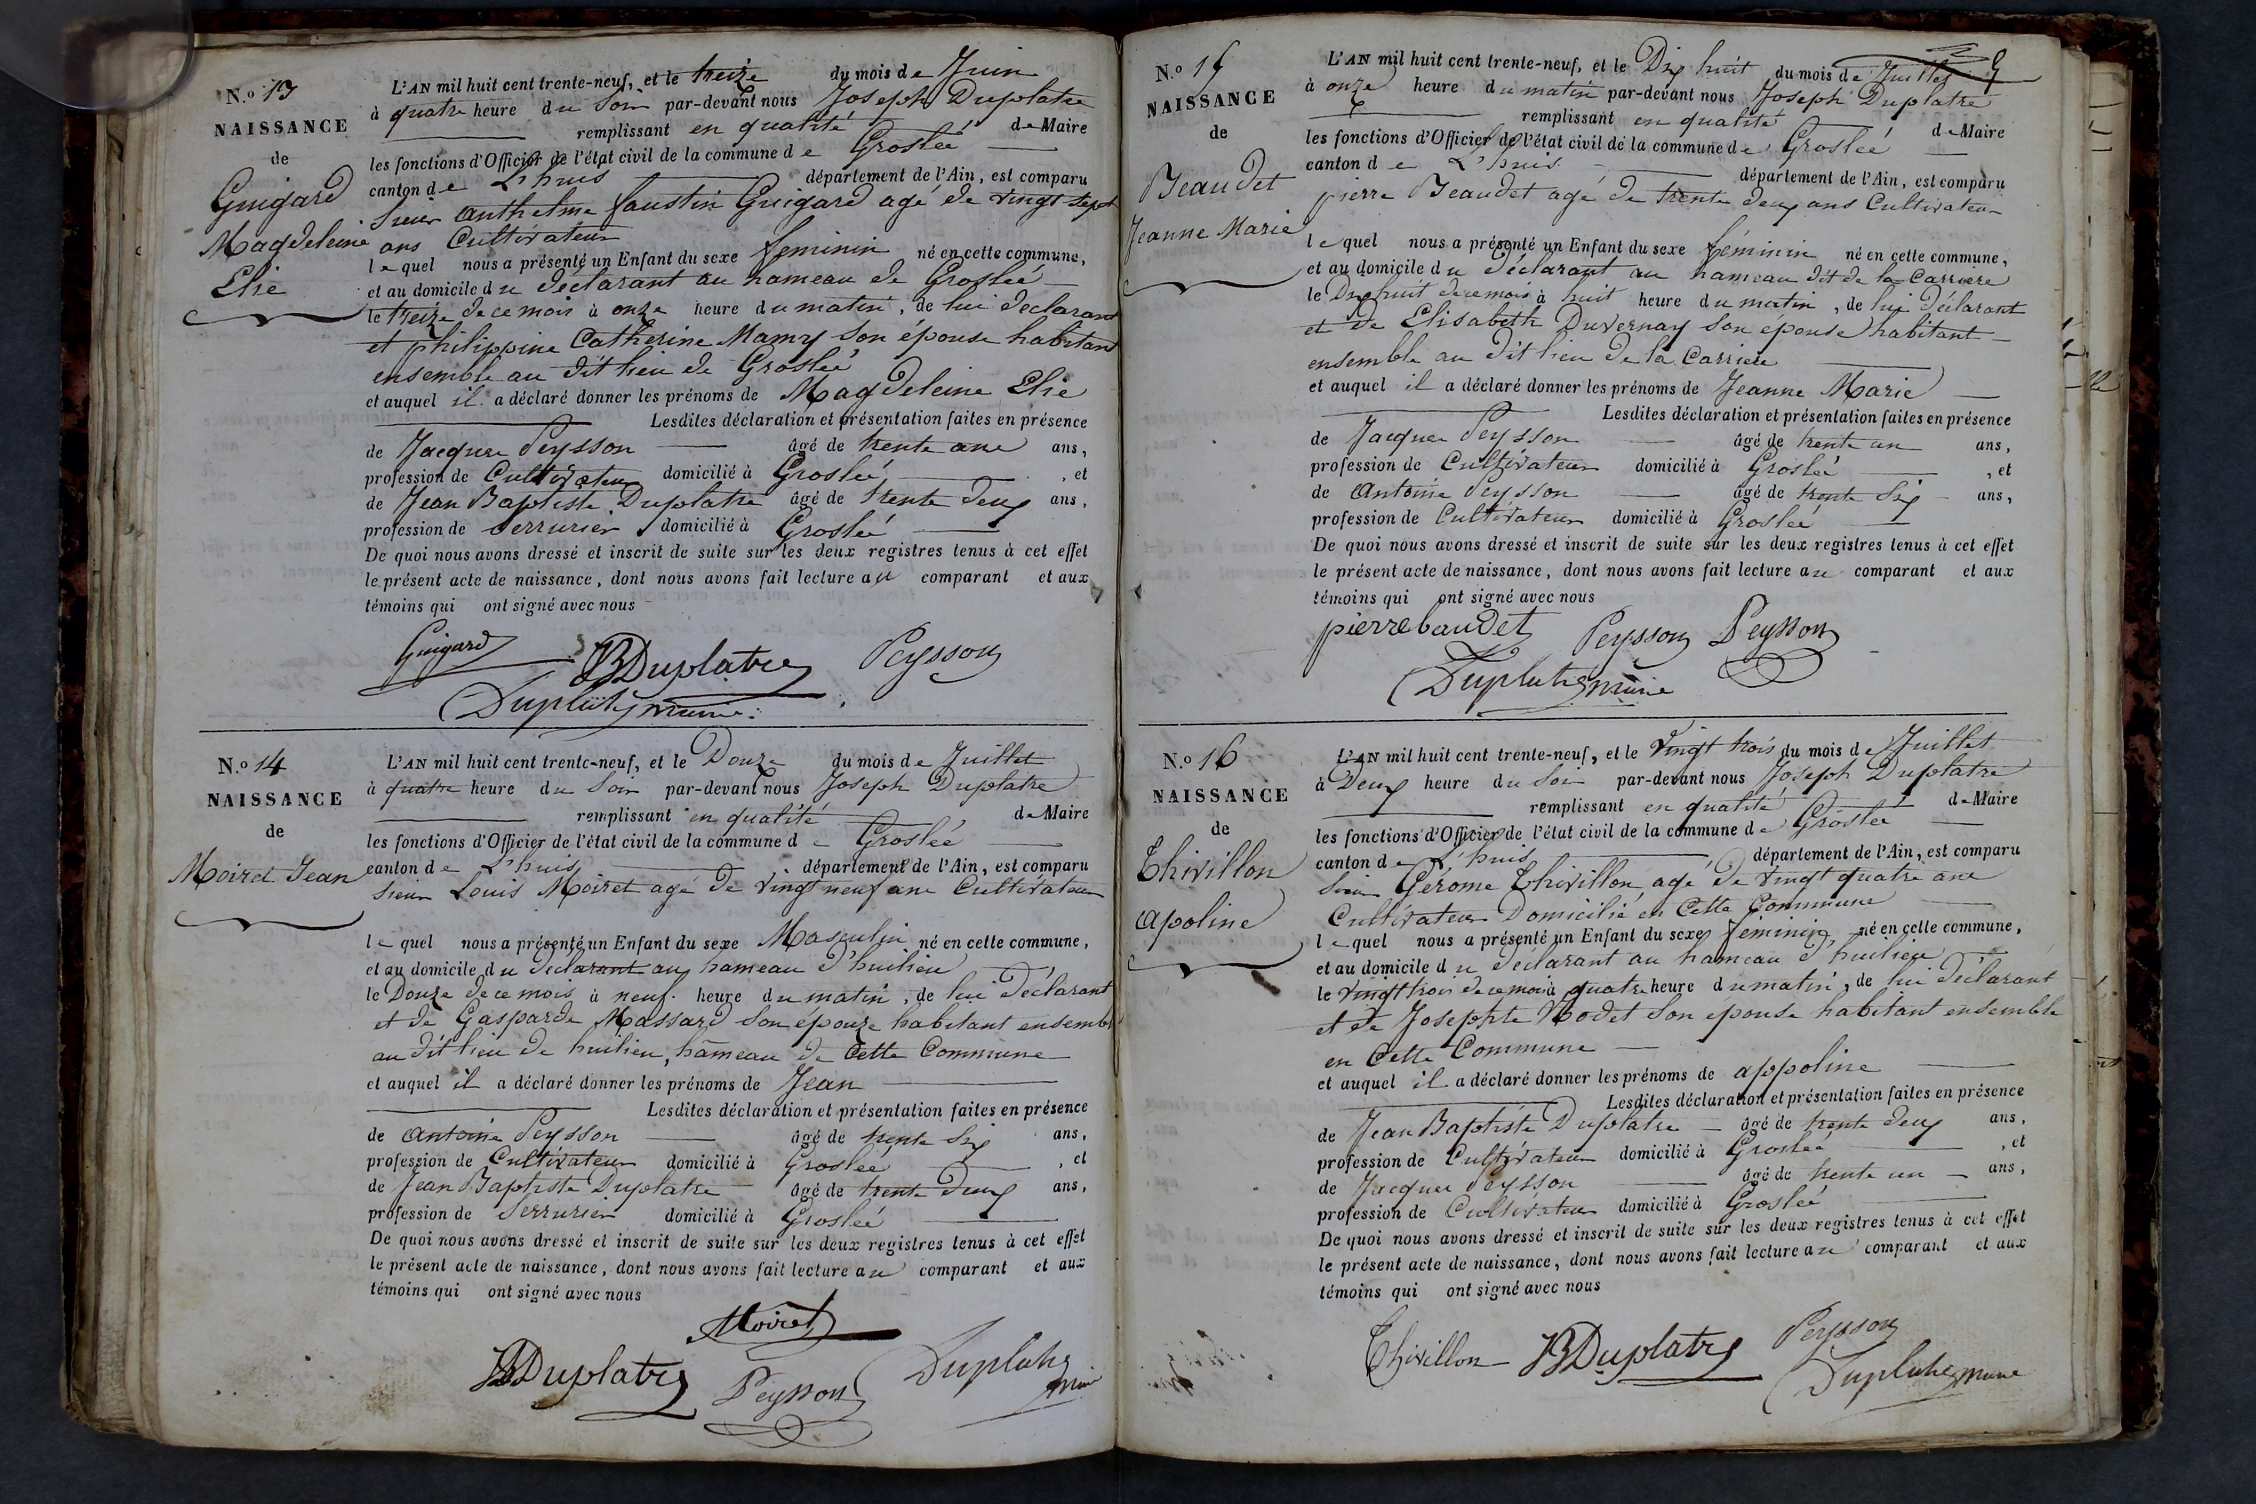 N.o 13
NAISSANCE
de
Guigard
Magdeleine
Elie
L'AN mil huit cent trente-neuf, et le treize du mois de Juin
à quatre heure du Soir par-devant nous Joseph Duplatre
remplissant en qualité de Maire
les fonctions d'Officier de l'état civil de la commune de Groslée
canton de L'huis département de l'Ain, est comparu
Sieur anthelme faustin Guigard agé de vingt sept
ans Cultivateur
lequel nous a présenté un Enfant du sexe feminin né en cette commune,
et au domicile du déclarant au hameau de Groslée
le treize de ce mois à onze heure du matin, de lui déclarant
et philippine Catherine Mamy Son épouse habitant
ensemble au dit lieu de Groslée
et auquel il a déclaré donner les prénoms de Magdeleine Elie
Lesdites déclaration et présentation faites en présence
de Jacques Peysson âgé de trente une ans,
profession de Cultivateur domicilié à Groslée, et
de Jean Baptiste Duplatre âgé de trente deux ans,
profession de Serrurier domicilié à Groslée
De quoi nous avons dressé et inscrit de suite sur les deux registres tenus à cet effet
le présent acte de naissance, dont nous avons fait lecture au comparant et aux
témoins qui ont signé avec nous
Guigard JBDuplatre Peysson
Duplatre maire
N.o 14
NAISSANCE
de
Moiret Jean
L'AN mil huit cent trente-neuf, et le Douze du mois de Juillet
à quatre heure du Soir par-devant nous Joseph Duplatre
remplissant en qualité de Maire
les fonctions d'Officier de l'état civil de la commune de Groslée
canton de L'huis département de l'Ain, est comparu
Sieur Louis Moiret agé de vingt neuf ans Cultivateur
lequel nous a présenté un Enfant du sexe Masculin né en cette commune,
et au domicile du déclarant au hameau d'huilieu
le Douze de ce mois à neuf heure du matin, de lui déclarant
et de Gasparde Massard Son épouze habitant ensemble
au dit lieu de huilieu, hameau de Cette Commune
et auquel il a déclaré donner les prénoms de Jean
Lesdites déclaration et présentation faites en présence
de Antoine Peysson âgé de trente Six ans,
profession de Cultivateur domicilié à Groslée, et
de Jean Baptiste Duplatre âgé de trente Deux ans,
profession de Serrurier domicilié à Groslée
De quoi nous avons dressé et inscrit de suite sur les deux registres tenus à cet effet
le présent acte de naissance, dont nous avons fait lecture au comparant et aux
témoins qui ont signé avec nous
Moiret
JBDuplatre Peysson Duplatre maire
N.o 15
NAISSANCE
de
Beaudet
Jeanne Marie
9
L'AN mil huit cent trente-neuf, et le Dix huit du mois de Juillet
à onze heure du matin par-devant nous Joseph Duplatre
remplissant en qualité de Maire
les fonctions d'Officier de l'état civil de la commune de Groslée
canton de L'huis département de l'Ain, est comparu
pierre Beaudet agé de trente deux ans Cultivateur
lequel nous a présenté un Enfant du sexe féminin né en cette commune,
et au domicile du déclarant au hameau dit de la Carriere
le Dix huit de ce mois à huit heure du matin, de lui déclarant
et de Elisabeth Duvernay Son épouse habitant
ensemble au dit lieu de la Carriere
et auquel il a déclaré donner les prénoms de Jeanne Marie
Lesdites déclaration et présentation faites en présence
de Jacques Peysson âgé de trente un ans,
profession de Cultivateur domicilié à Groslée, et
de Antoine Peysson âgé de trente Six ans,
profession de Cultivateur domicilié à Groslée
De quoi nous avons dressé et inscrit de suite sur les deux registres tenus à cet effet
le présent acte de naissance, dont nous avons fait lecture au comparant et aux
témoins qui ont signé avec nous
pierre baudet Peysson Peysson
Duplatre maire
N.o 16
NAISSANCE
de
Thivillon
apoline
L'AN mil huit cent trente-neuf, et le Vingt trois du mois de Juillet
à Deux heure du Soir par-devant nous Joseph Duplatre
remplissant en qualité de Maire
les fonctions d'Officier de l'état civil de la commune de Groslée
canton de L'huis département de l'Ain, est comparu
Sieur Gérome Thivillon agé de vingt quatre ans
Cultivateur Domicilié en Cette Commune
lequel nous a présenté un Enfant du sexe féminin, né en cette commune,
et au domicile du déclarant au hameau d'huilieu
le vingt trois de ce mois à quatre heure du matin, de lui déclarant
et de Josephte Nodet Son épouse habitant ensemble
en Cette Commune
et auquel il a déclaré donner les prénoms de appoline
Lesdites déclaration et présentation faites en présence
de Jean Baptiste Duplatre âgé de trente deux ans,
profession de Cultivateur domicilié à Groslée, et
de Jacques Peysson âgé de trente un ans,
profession de Cultivateur domicilié à Groslée
De quoi nous avons dressé et inscrit de suite sur les deux registres tenus à cet effet
le présent acte de naissance, dont nous avons fait lecture au comparant et aux
témoins qui ont signé avec nous
Thivillon JBDuplatre Peysson
Duplatre maire